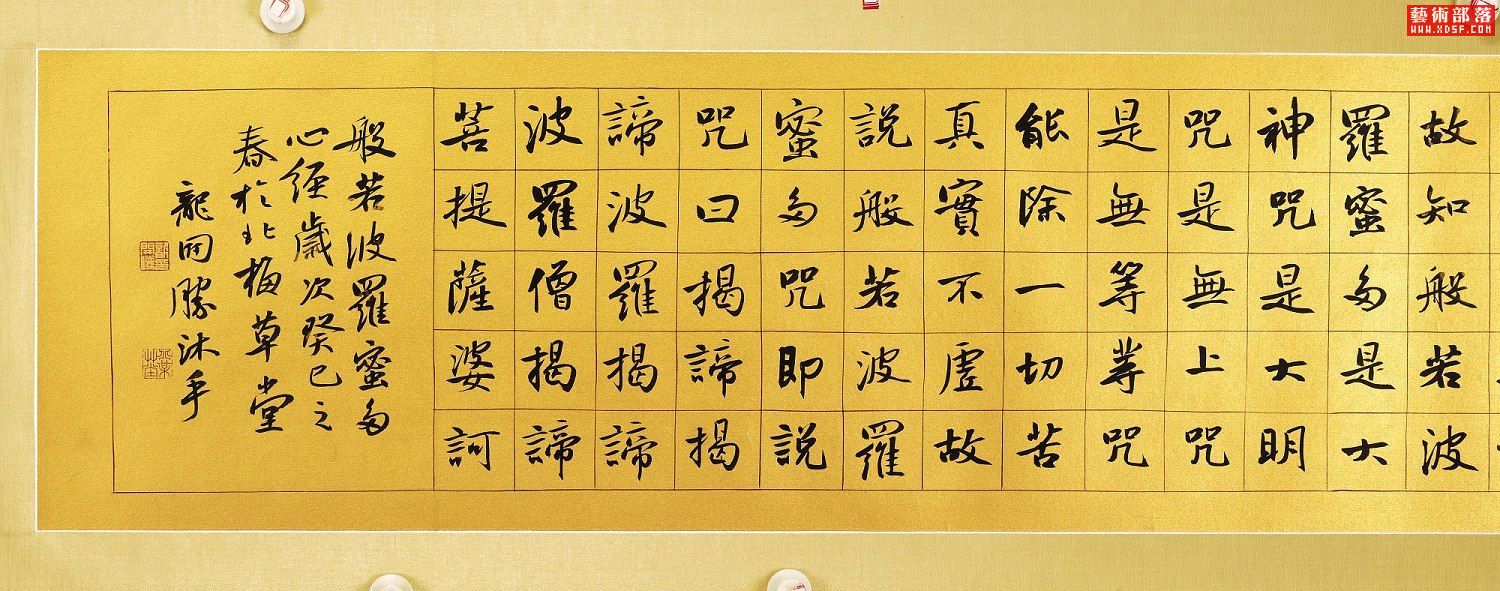 故知般若波
羅蜜多是大
神咒是大明
咒是無上咒
是無等等咒
能除一切苦
真實不虛故
說般若波羅
蜜多咒即說
咒曰揭諦揭
諦波羅揭諦
波羅僧揭諦
菩提薩婆訶
般若波羅蜜多
心經歲次癸巳之
春於北梅草堂
龍田勝沐手
藝術部落
WWW.XDSF.COM